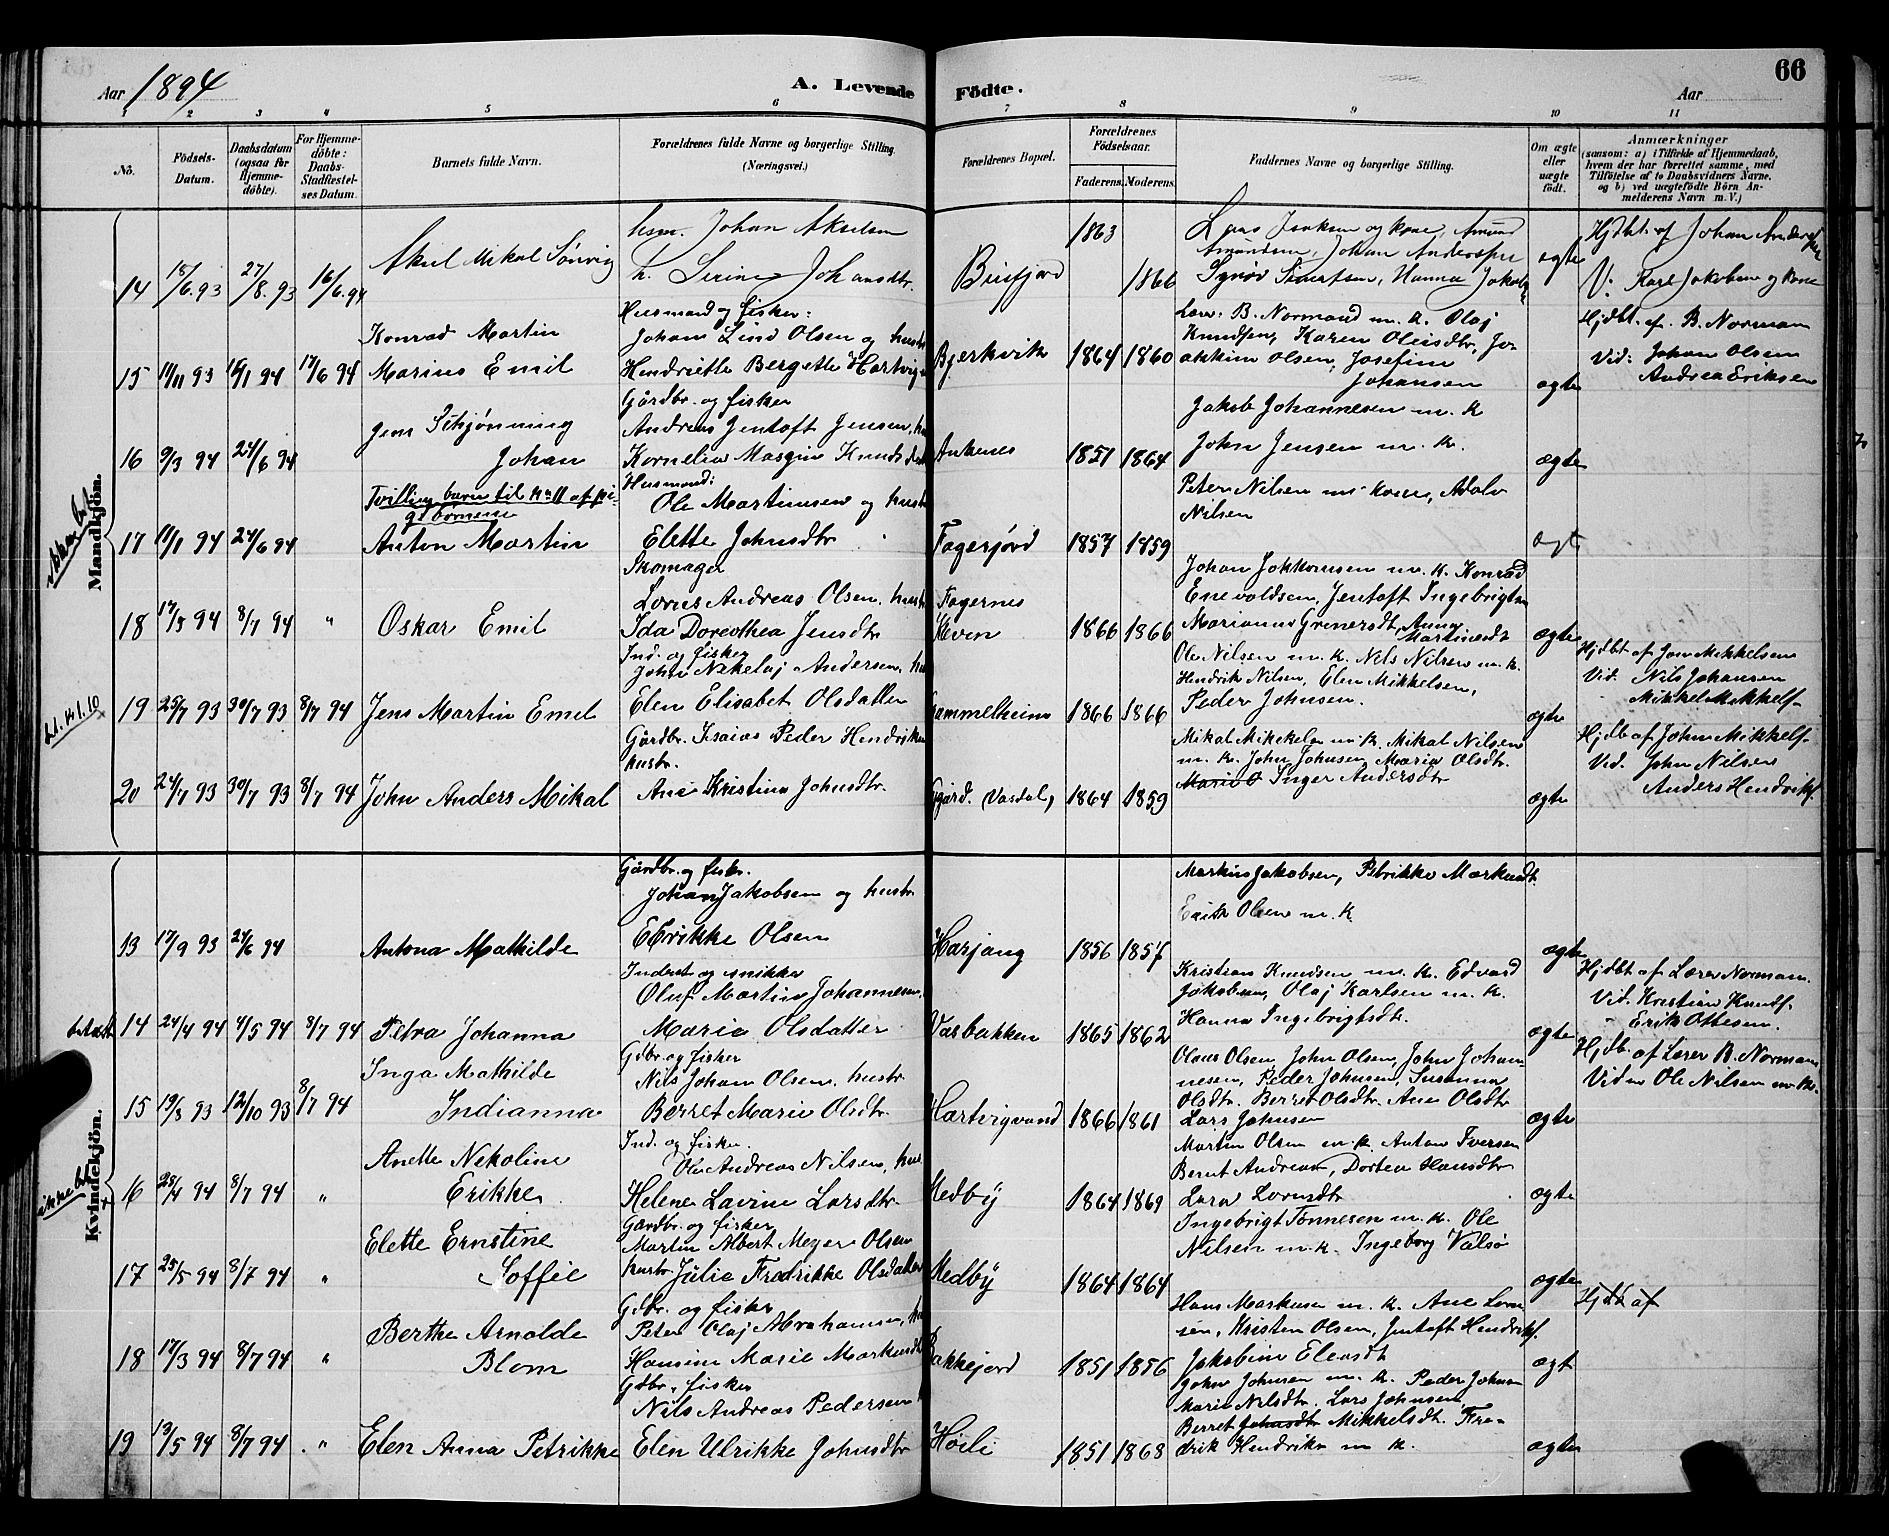 Aar 1894
A. Levende Födte.
Aar
66
1 2 3 4 5 6 7 8 9 10 11
No.
Födsels-Datum.
Daabsdatum (ogsaa for Hjemme-döbte).
For Hjemme-döbte: Daabs-Stadfæstel-ses Datum.
Barnets fulde Navn.
Forældrenes fulde Navne og borgerlige Stilling. (Næringsvei.)
Forældrenes Bopæl.
Forældrenes Födselsaar.
Faderens. Moderens.
Faddernes Navne og borgerlige Stilling.
Om ægte eller uægte födt.
Anmærkninger
(saasom: a) i Tilfælde af Hjemmedaab, hvem der har forrettet samme, med Tilföielse af to Daabsvidners Navne, og b) ved uægtefödte Börn An-melderens Navn m. V.)
Mandkjön.
14 15/6.93 27/8.93 16/6.94 Aksel Mikal
Johan Akselsen
h. Serine Johansdtr.
1863 1866
Johan Andersen
Hanna Jakobs
ægte
Hjdbt. af Johan Anders
V: Karl Jakobsen og Kone
15 11/11 93 15/1 94 17/6 94 Konrad Martin
Marius Emil
Husmand og fisker:
Johan Lind Olsen og hustr
Hendriette Bergette Hartvig
Bjerkvik 1864 1860
Lærer B. Normand m. k. Olaj
Knudsen, Karen Oleisdtr, Jo-
akkim Olsen, Josefine
Johansen
ægte
Hjdbt. af. B. Norman
Vid: Johan Olsen
Andrea Eriksen
16 9/3 94 24/6 94 Jens Schjønning
Johan
Gårdbr. og fisker
Andreas Jentoft Jensen, hu
Kornelia Masgine Knudsdatt
Ankenes 1851 1864
Jakob Johannesen m. k
John Jensen m. k.
ægte
17 11/1 94 24/6 94 Tvilling barn til No 11 af pi-
gebørnene
Anton Martin
Husmand:
Ole Martinusen og hustr
Elette Johnsdtr
Fagerjord 1857 1859
Peter Nilsen m. kone, Adolv
Nilsen
ægte
18 17/5 94 8/7 94 " Oskar Emil
Skomager
Lorns Andreas Olsen. hustr
Ida Dorothea Jensdtr
Fagernes
1866 1866
Johan Johkomsen m. k. Konrad
Enevoldsen, Jentoft Ingebrigtsn
Marianna Grenersdt, Anna
Martinsdt
ægte
19 25/7 93 30/7 93 8/7 94 Jens Martin Emil
Ind. og fisker
John Nikolaj Andersen, hu
Elen Elisabet Olsdatter
Gammelheim 1866 1866
Ole Nilsen m. k. Nils Nilsen m. k.
Hendrik Nilsen, Elen Mikkelsen,
Peder Johnsen.
ægte
Hjdbt af Jon Mikkelsen
Vid. Nils Johansen
Mikkel Mikkels.
20 24/7 93 30/7 93 8/7 94 John Anders Mikal
Gårdbr. Isaias Peder Hendriksen
hustr.
Ane Kristina Johnsdtr.
1864 1859
Mikal Mikkelsn m. k. Mikal Nilsen
m. k. John Johnsen Maria Olsdtr.
Inger Andersdtr
ægte
Hjdb af John Mikkels.
Vid. John Nilsen
Anders Hendriks.
Kvindekjön.
13 17/9 93 24/6 94 Antona Mathilde
Gårdbr. og fiskr.
Johan Jakobsen og hustr
Erikke Olsen
Harjang 1856 1857
Markus Jakobsen, Petrikke Markusdt.
Erik Olsen m. k.
ægte
14 24/4 94 4/5 94 8/7 94 Petra Johanna
Inderst og snikker
Oluf Martin Johannesen.
Marie Olsdatter
Vasbakken 1865 1862
Kristian Knudsen m. k. Edvard
Jakobsen, Olaj Karlsen m. k.
Hanna Ingebrigtsdtr.
ægte
Hjdbt af Lærer Norman.
Vid. Kristian Knuts.
Erik Ottesen.
15 19/8 93 12/10 93 8/7 94 Inga Mathilde
Indianna
Gdbr. og fisker
Nils Johan Olsen. hustr
Berret Marie Olsdtr
Hartvigvand 1866 1861
Olaus Olsen, John Olsen, John Johan-
nesen, Peder Johnsen, Susanna
Olsdtr. Berret Olsdtr. Ane Olsdtr
Lars Johnsen
ægte
Hjdb. af Lærer B. Norman
Vidn Ole Nilsen m. k.
16 28/4 94 8/7 94 " Anette Nikoline
Erikke
Ind. og fisker.
Ole Andreas Nilsen, hus
Helene Lavine Larsdtr.
Medby 1864 1869
Martin Olsen m. k. Anton Iversen
Bernt Andreas, Dortea Hansdtr
ægte
17 25/5 94 8/7 94 " Elette Ernstine
Soffie
Gårdbr. og fisker
Martin Albert Meyer Olsen
hustr. Julie Fredrikke Olsdatter
Medby 1864 1864
Ingebrigt Tønnesen m. k. Ole
Nilsen m. k. Ingeborg Valsø
ægte
Hjdb af
18 17/3 94 8/7 94 " Berthe Arnolde
Blom
Gdbr. og fisker
Peter Olaj Abrahamsen, hu
Hansine Marie Markusdt
Bakkejord 1851 1856
Hans Markusen m. k. Ane Lorn
sen, Kristen Olsen, Jentoft Hendriks.
Jakobine Eleasdt
ægt
19 13/5 94 8/7 94 " Elen Anna Petrikke
Gdbr. fisker
Nils Andreas Pedersen
Elen Ulrikke Johnsdtr
Høili 1851 1863
John Johnsen m. k. Peder Johnsn
Marie Nilsdt. Lars Johnsen,
Berret Johnsdtr Mikkelsdt. Fre-
drik Hendriksn m k.
ægte